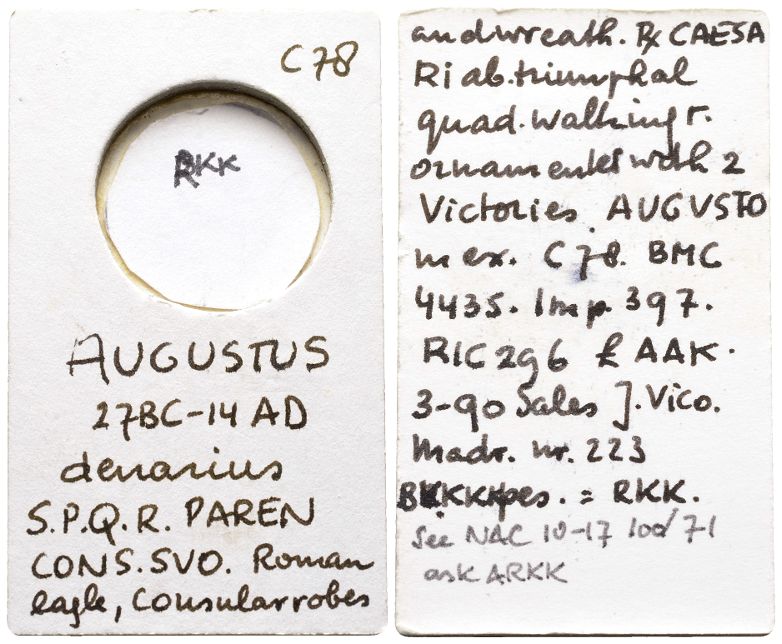 C78
RKK
AUGUSTUS
27BC-14 AD
denarius
S.P.Q.R. PAREN
CONS.SVO. Roman
eagle, Consular robes
and wreath. Rx CAESA
RI ab. triumphal
quad. walking r.
ornamented with 2
Victories. AUGVSTO
in ex. C78. BMC
4435. Imp. 397.
RIC 296 £ AAK.
3-90 Sales J. Vico.
Madr. nr. 223
pes. = RKK.
See NAC 10-17 100/71
ask ARKK